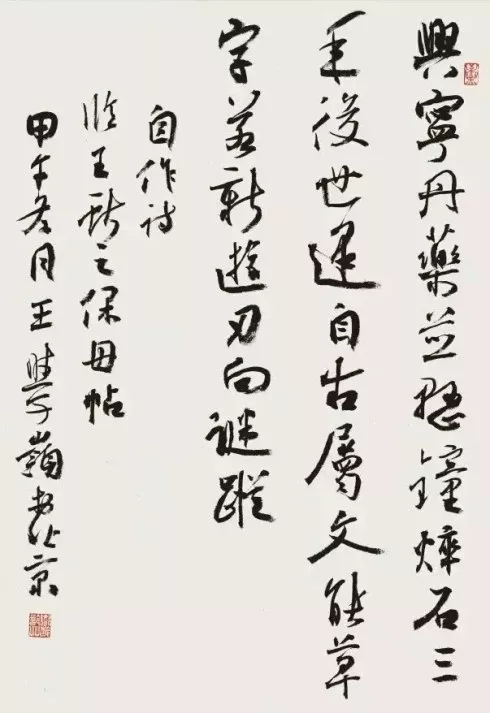 興寧丹藥並懸鐘石三
後世逢自古屬文能草
字若新遊刃向謎蹤
自作詩
臨王獻之保母帖
甲午冬月王學嶺書北京